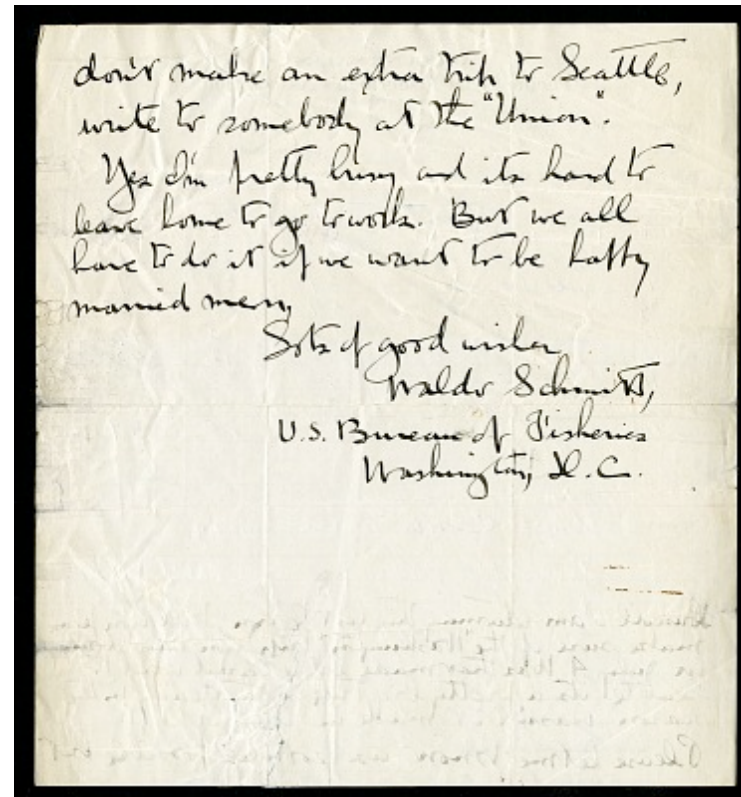 don't make an extra trip to Seattle,
write to somebody at the "Union".
Yes I'm pretty busy and its hard to
leave home to go to work. But we all
have to do it if we want to be happy
married men,
Lots of good wishes
Waldo Schmitt,
U.S. Bureau of Fisheries
Washington, D.C.